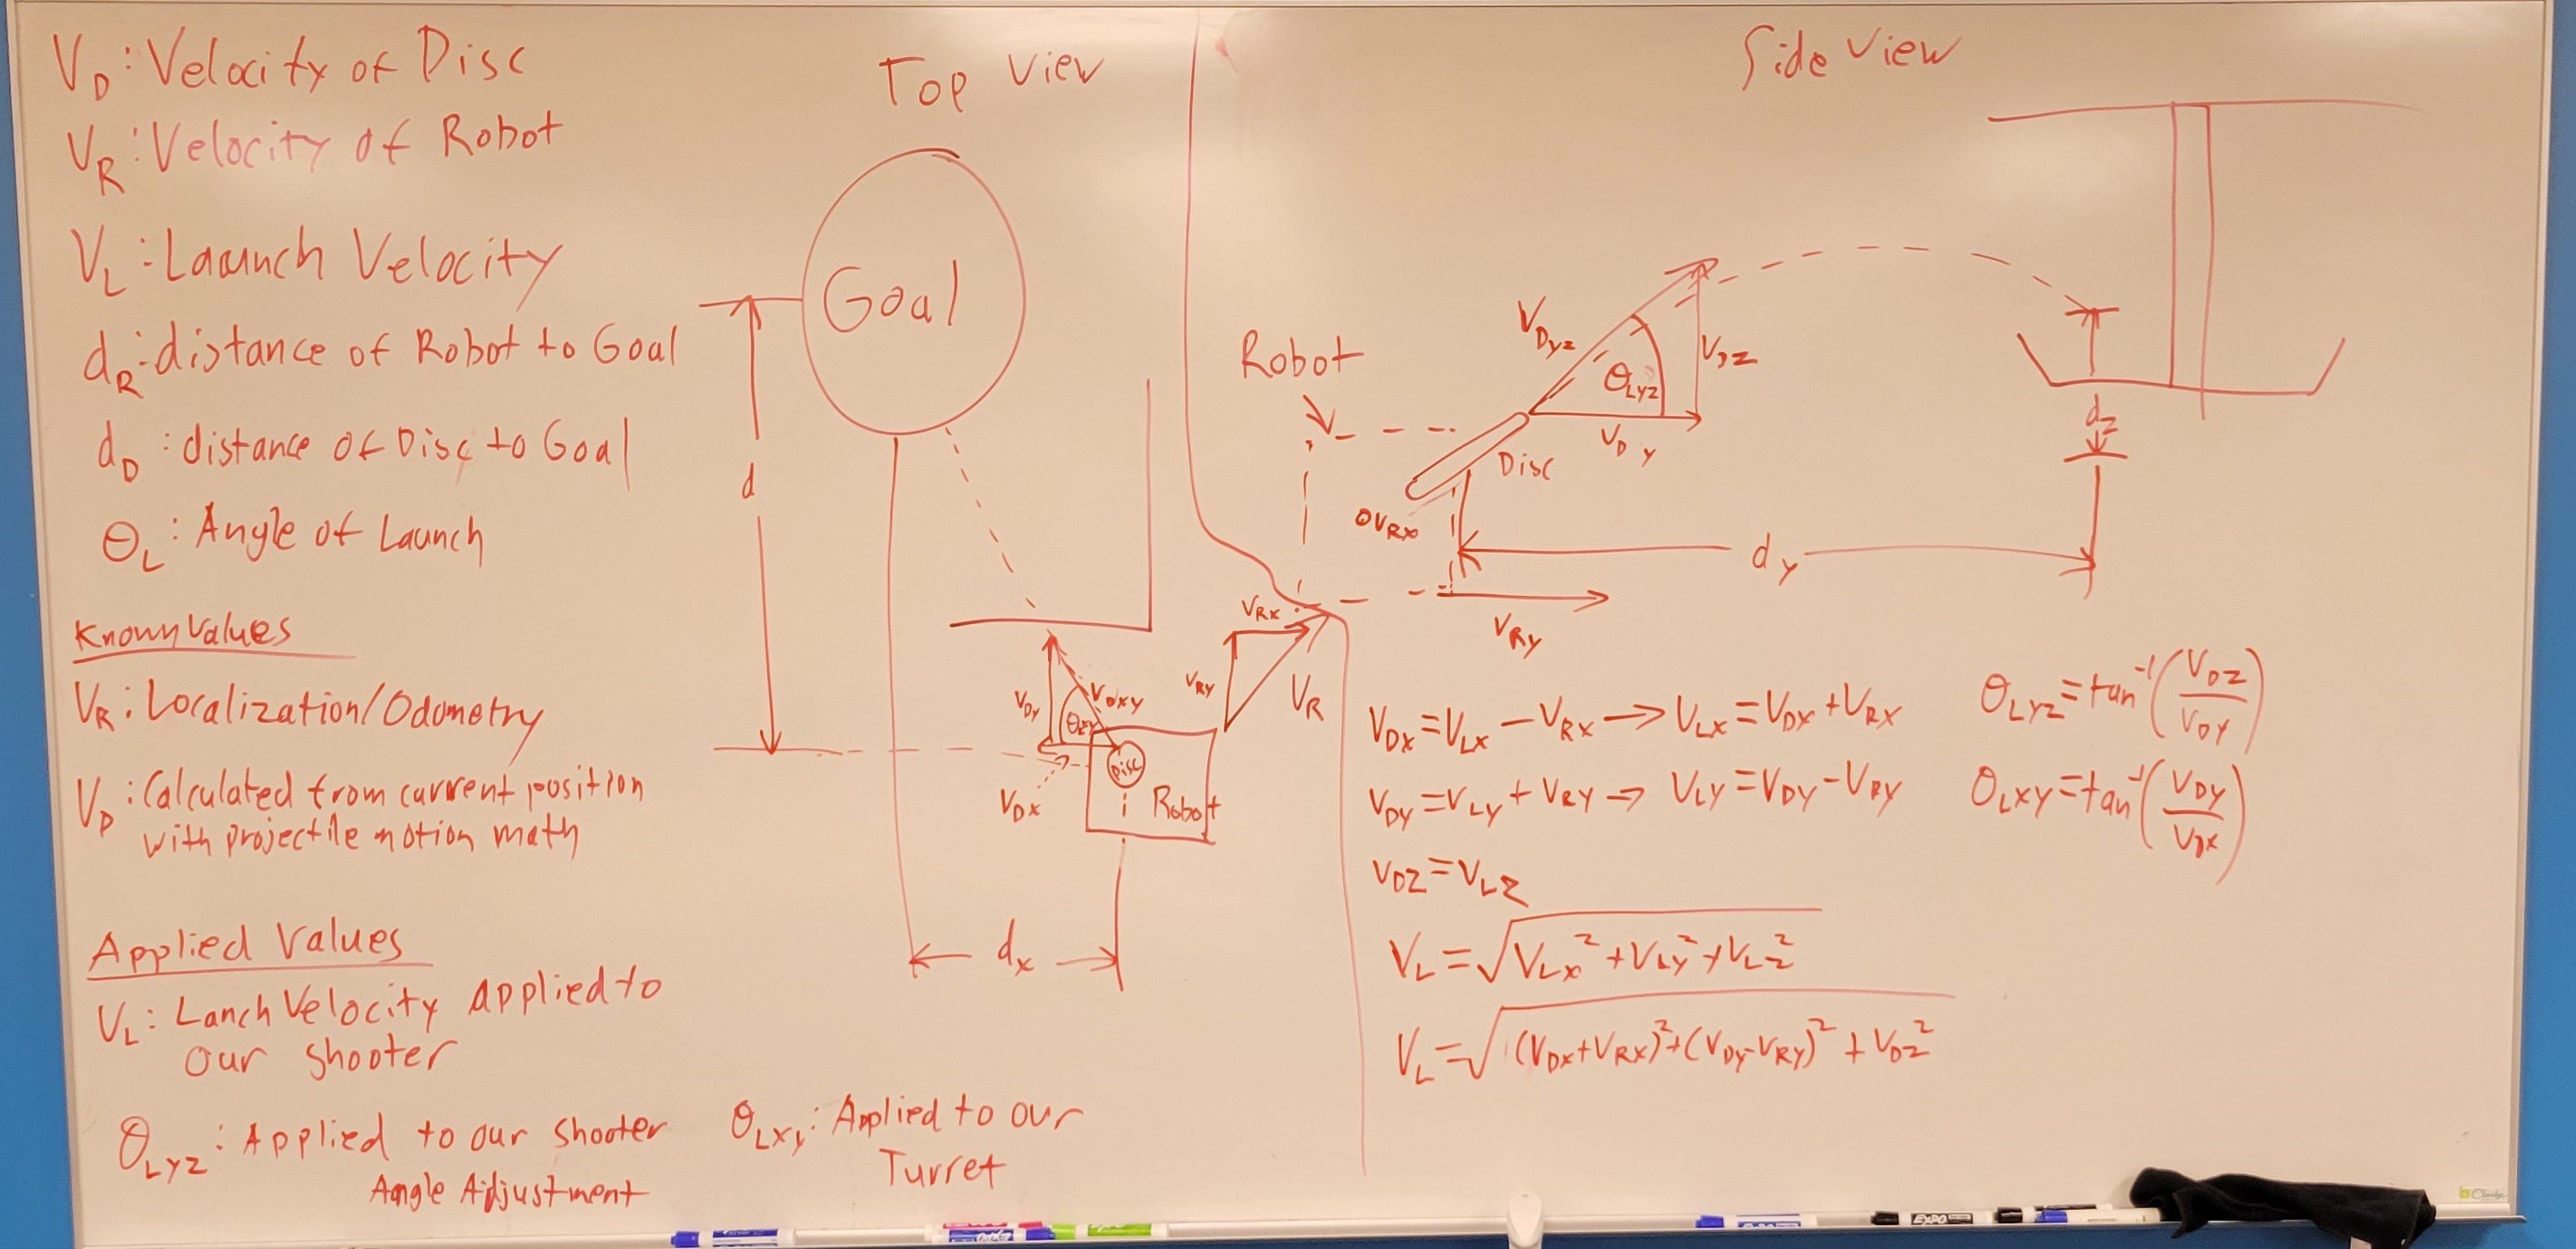 V_D: Velocity of Disc
V_R: Velocity of Robot
V_L: Launch Velocity
d_R: distance of Robot to Goal
d_D: distance of Disc to Goal
θ_L: Angle of Launch
Known Values
V_R: Localization/Odometry
V_D: Calculated from current position
with projectile motion math
Applied Values
V_L: Lanch Velocity applied to
our shooter
θ_LYZ: Applied to our shooter
Angle Adjustment
θ_LXY: Applied to our
Turret
Top View
Goal
d
V_DY
V_DXY
V_DX
Disc
Robot
d_x
V_RX
V_RY
V_R
Side View
Robot
V_DYZ
θ_LYZ
V_DZ
V_DY
Disc
V_RX
d_Y
d_Z
V_RY
V_DX = V_LX - V_RX → V_LX = V_DX + V_RX
V_DY = V_LY + V_RY → V_LY = V_DY - V_RY
V_DZ = V_LZ
V_L = √(V_LX² + V_LY² + V_LZ²)
V_L = √((V_DX + V_RX)² + (V_DY - V_RY)² + V_DZ²)
θ_LYZ = tan⁻¹(V_DZ / V_DY)
θ_LXY = tan⁻¹(V_DY / V_DX)
EXPO